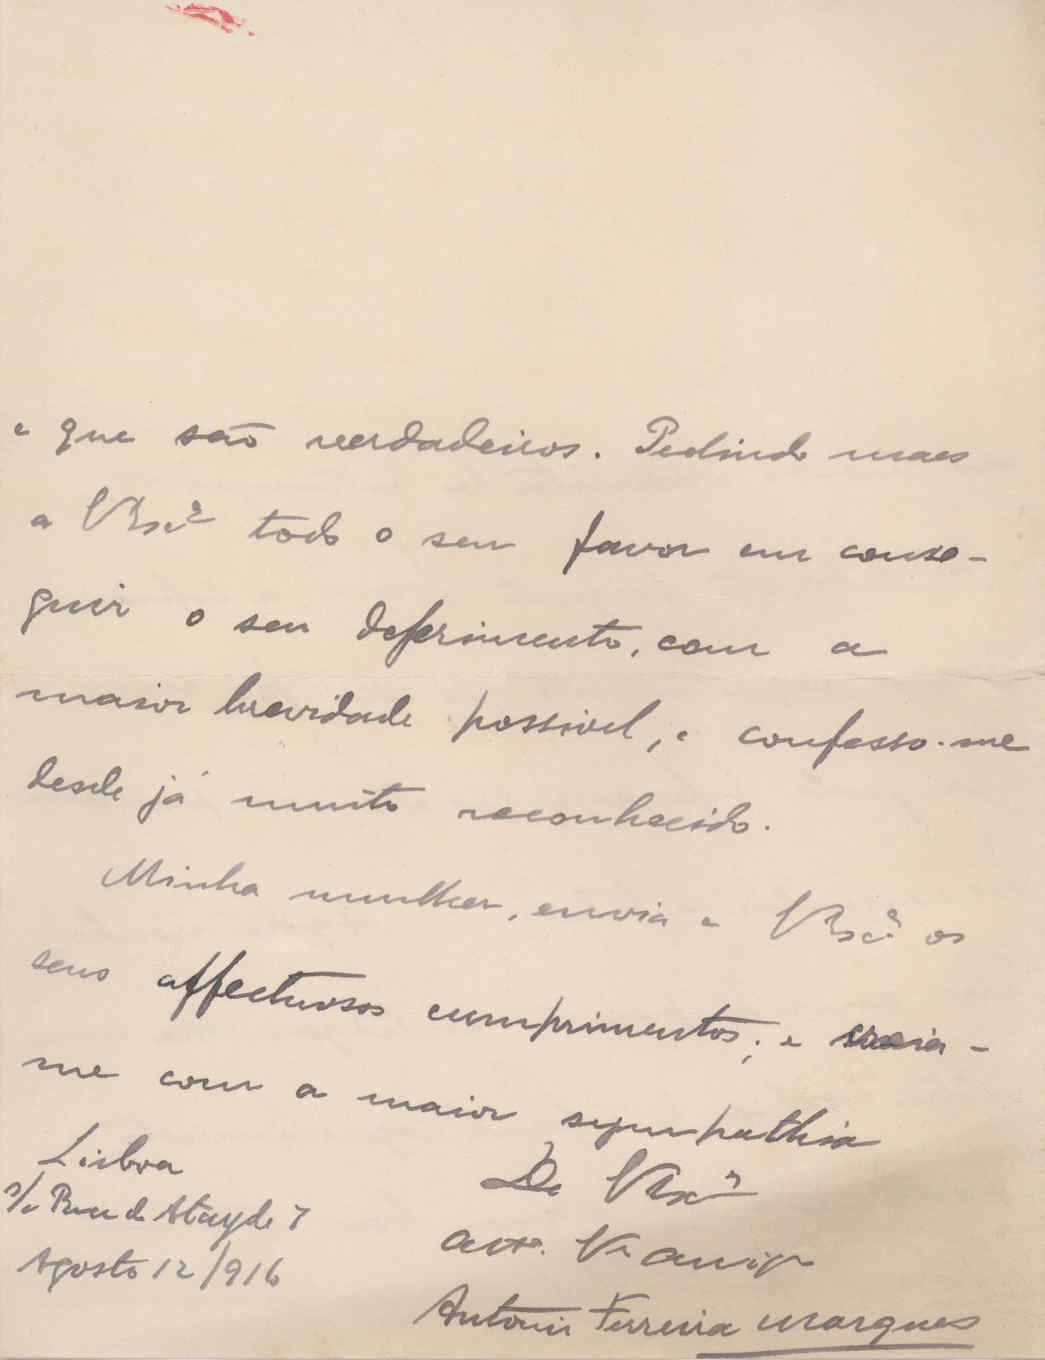 e que são verdadeiros. Pedindo mais
a VExª todo o seu favor em conse-
guir o seu deferimento, com a
maior brevidade possivel, e confesso-me
desde já muito reconhecido.
Minha mulher, envia a VExª os
seus affectuosos cumprimentos; e creia-
me com a maior sympathia
De VExª
attº. Vr amigº
Antonio Ferreira Marques
Lisboa
s/c Rua de Atayde 7
Agosto 12/916